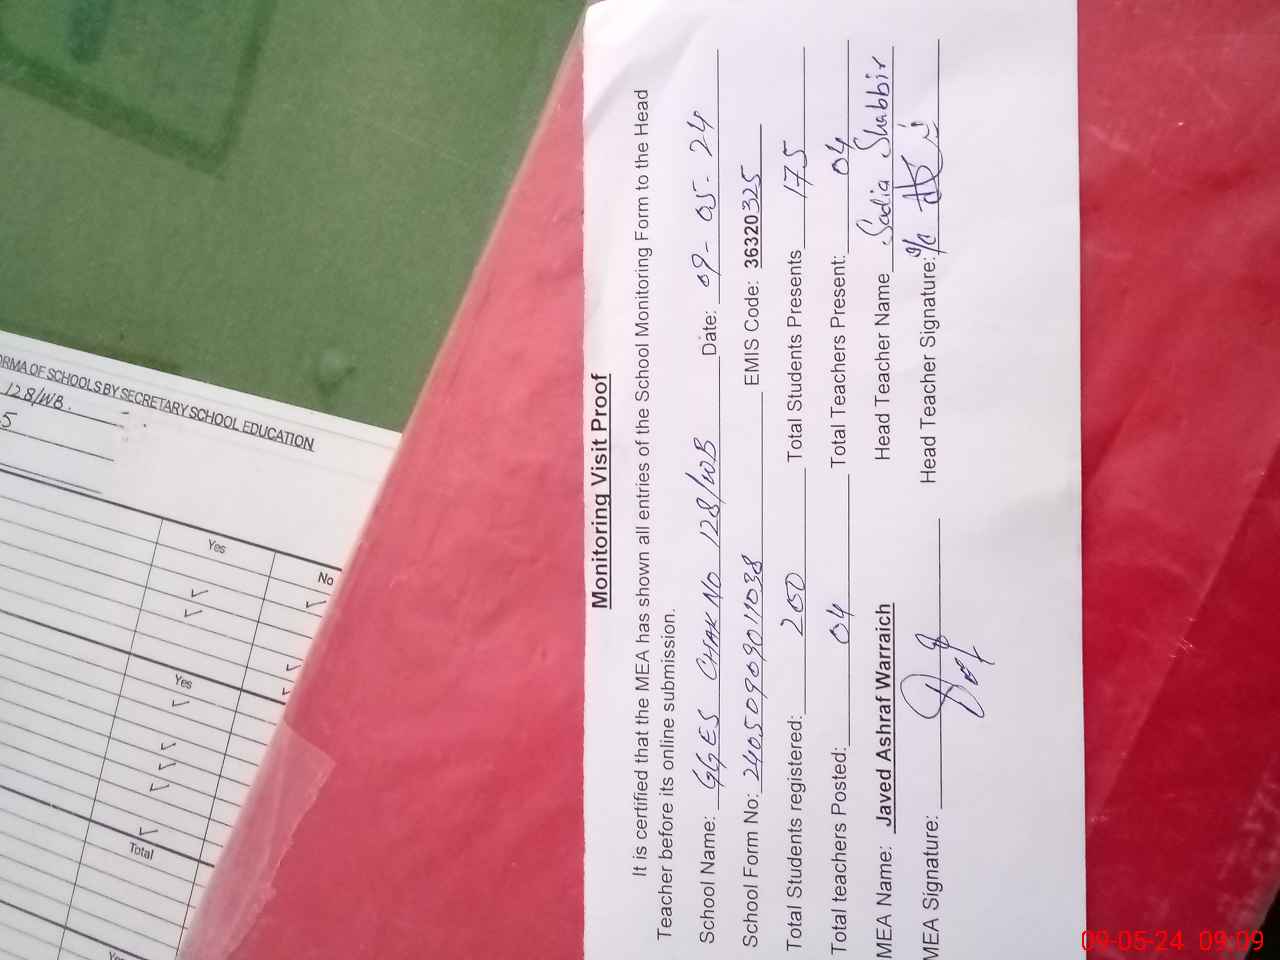 Monitoring Visit Proof
It is certified that the MEA has shown all entries of the School Monitoring Form to the Head
Teacher before its online submission.
School Name: GGES CHAK NO 128/WB Date: 09-05-24
School Form No: 240509090911038 EMIS Code: 36320325
Total Students registered: 200 Total Students Presents 175
Total teachers Posted: 04 Total Teachers Present: 04
MEA Name: Javed Ashraf Warraich Head Teacher Name Sadia Shabbir
MEA Signature: Head Teacher Signature:
ORMA OF SCHOOLS BY SECRETARY SCHOOL EDUCATION
128/WB.
5
Yes No
Yes
Total
Yes
09-05-24 09:09